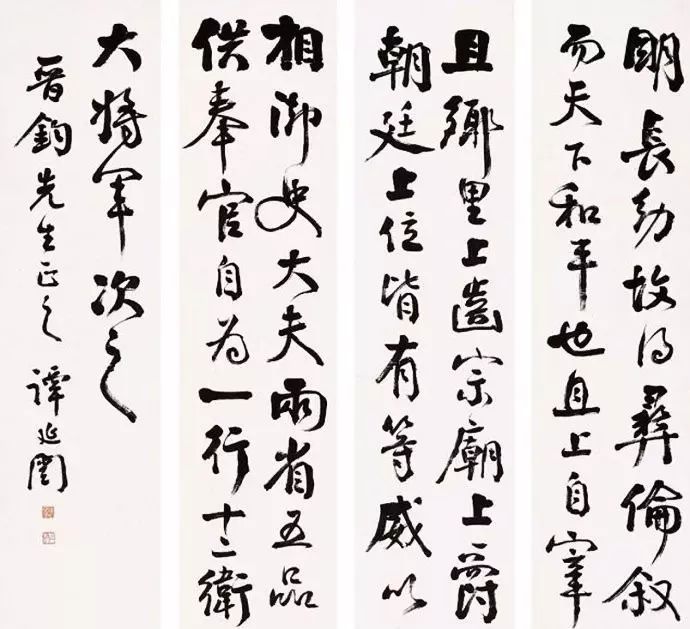 明長幼故得彝倫叙
而天下和平也且上自宰
且鄉里上齒宗廟上爵
朝廷上位皆有等威以
相御史大夫兩省五品
供奉官自為一行十二衛
大將軍次之
晉鈞先生正之 譚延闓